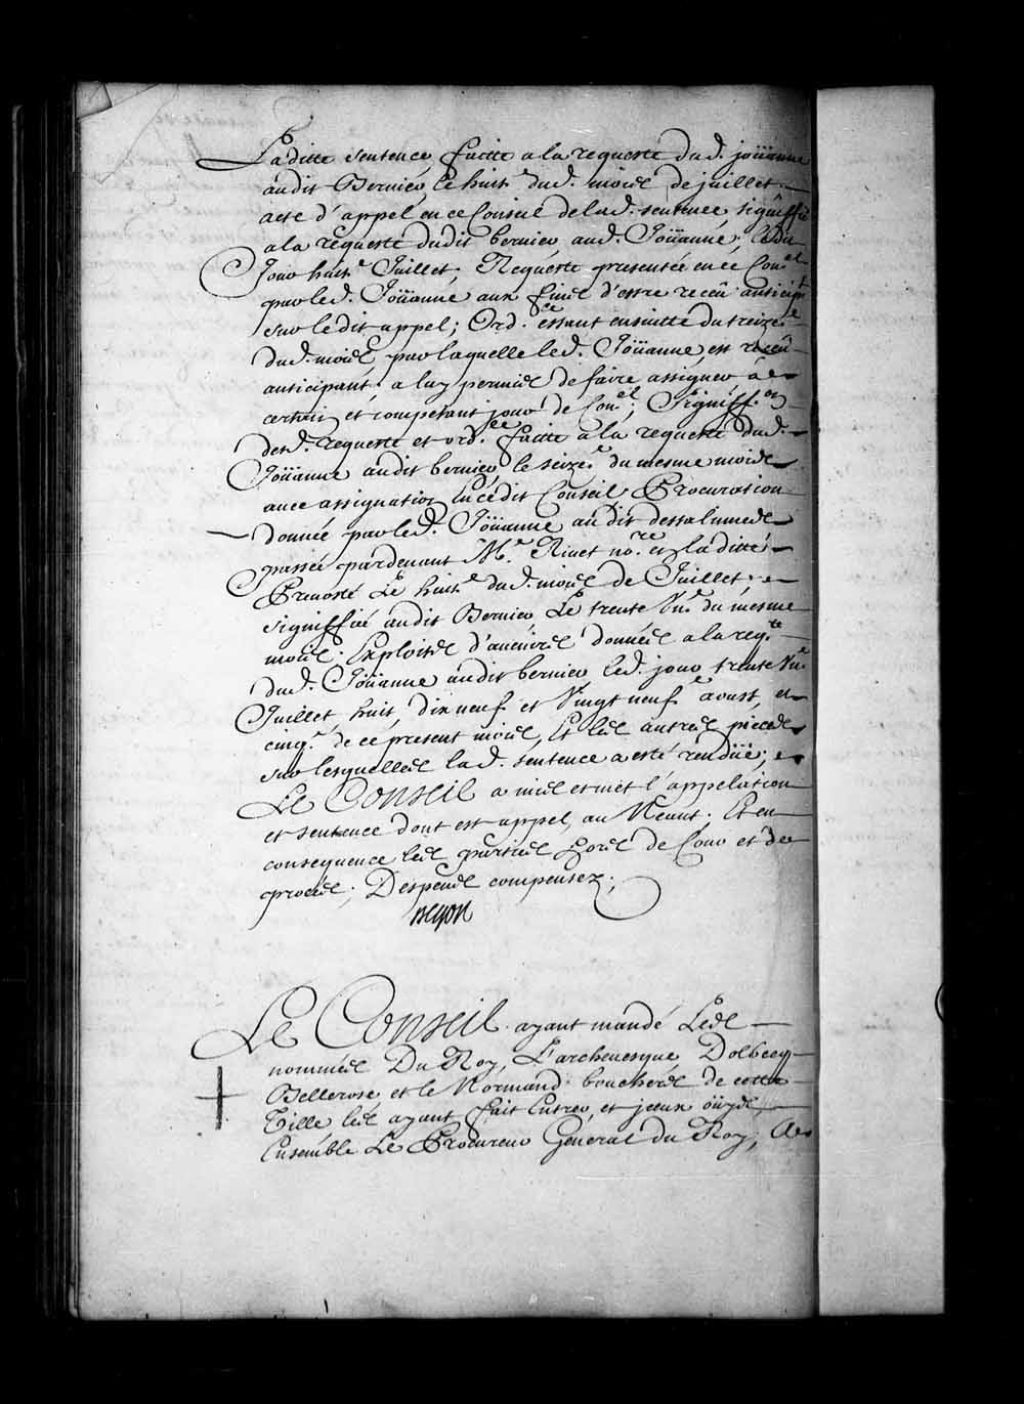 Laditte sentence faitte a la requeste dud. joüanne
audit Bernier, le huit.e dud. mois de juillet
acte d'appel en ce Conseil de lad. sentence signiffié
a la requeste dudit bernier aud. Joüanne, ledit
Jour huit.e Juillet; Requeste presentée en ce Con.el
par led. Joüanne aux fins d'estre receu anticipt
sur ledit appel; Ord.ce estant ensuitte du treize.e
dud. mois par laquelle led. Joüanne est receu
anticipant; a luy permis de faire assigner a
certain et competant jour de Con.el; Signiff.on
desd. requeste et ord.ce faitte a la requeste dud.
Joüanne audit bernier le seize.e du mesme mois
avec assignation En cedit Conseil, Procuration
donnée par led. Joüanne au dit dessalinnes
passée pardevant M.e Rivet no.re en laditte
Prevosté Le huit.e dud. mois de Juillet,
signiffié audit Bernier, Le trente Un.e du mesme
mois; Exploits d'avenirs donnés a la req.te
dud. Joüanne audit bernier, led. jour trente Un.e
Juillet huit, dix neuf et Vingt neuf.e aoust, et
cinq.e de ce present mois, Et les autres pieces
sur lesquelles lad. sentence a esté rendüe;
Le Conseil a mis et met l'appelation
et sentence dont est appel, au Neant; Et en
consequence les parties hors de Cour et de
procés; Despens compensez;
Begon
Le Conseil ayant mandé Les
nommés Du Roy, L'archevesque Dolbecq
Bellerose et le Normand bouchers de cette
Ville les ayant fait Entrer, et iceux oüys,
Ensemble Le Procureur General du Roy;